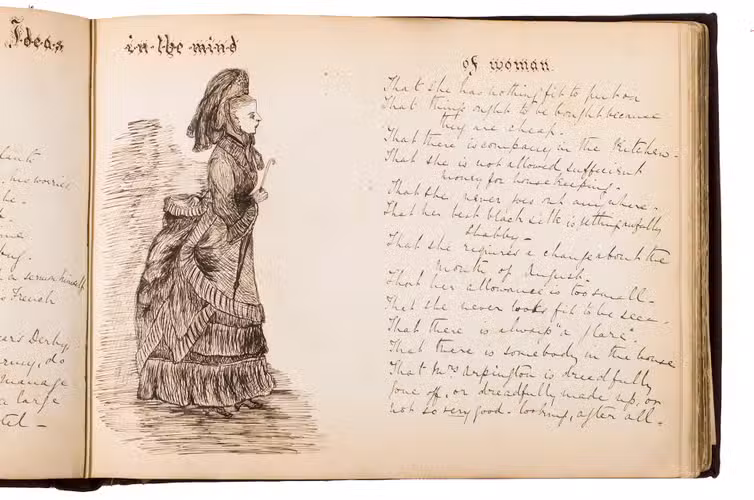 Ideas
in the mind
of woman
lant
his worries
he.
t
one
hey.
a sermon himself
s French
cers Derby,
rney, do
manage
a large
tel -
That she has nothing fit to put on
That things ought to be bought because
they are cheap.
That there is company in the kitchen -
That she is not allowed sufficient
money for housekeeping.
That she never goes out anywhere.
That her best black silk is getting awfully
shabby -
That she requires a change about the
month of August.
That her allowance is too small -
That she never looks fit to be seen.
That there is always "a glare".
That there is somebody in the house
That Mrs Arpington is dreadfully
gone off, or dreadfully made up, or
not so very good-looking, after all -